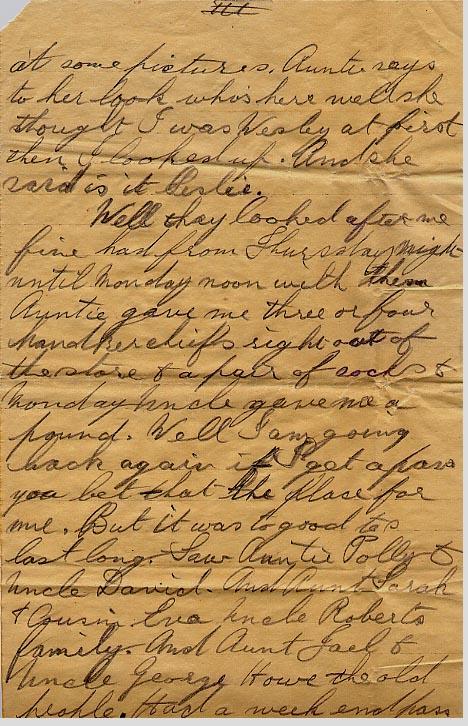 III
at some pictures. Auntie says
to her look who's here well she
thought I was Wesley at first
then I looked up. And she
said is it Leslie.
Well thay looked after me
fine had from Thursday night
until Monday noon with them
Auntie gave me three or four
handkerchiefs right out of
the store & a pair of socks &
Monday Uncle gave me a
pound. Well I am going
back again if I get a pass
you bet that the plase for
me. But it was to good to
last long. Saw Auntie Polly &
Uncle David. And Aunt Sarah
& Cousin Eva Uncle Roberts
family. And Aunt Jael &
Uncle George Howe the old
people. Had a week end pass